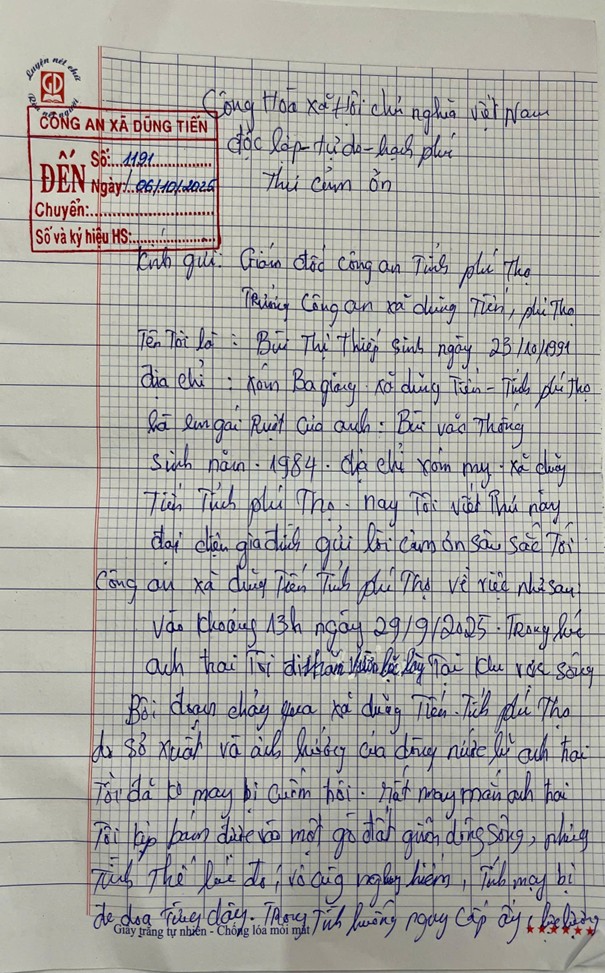 Luyện nét chữ
CÔNG AN XÃ DŨNG TIẾN
ĐẾN
Số: 1191
Ngày: 06/10/2025
Chuyển:
Số và ký hiệu HS:
Cộng Hòa xã Hội chủ nghĩa việt Nam
độc lập - tự do - hạnh phú
Thư cảm ơn
Kính gửi: Giám đốc công an Tỉnh phú Thọ
Trưởng Công an xã dũng Tiến, phú Thọ
Tên Tôi là : Bùi Thị Thiếp sinh ngày 23/10/1991
địa chỉ : xóm Ba giang xã dũng Tiến - Tỉnh phú Thọ
là em gái Ruột của anh : Bùi văn Thống
Sinh năm 1984 địa chỉ xóm my xã dũng
Tiến Tỉnh phú Thọ. nay Tôi viết Thư này
đại diện gia đình gửi lời cảm ơn sâu sắc Tới
Công an xã dũng Tiến Tỉnh phú Thọ về việc như sau:
vào khoảng 13h ngày 29/9/2025. Trong lúc
anh trai Tôi đi Tại khu vực sông
Bôi đoạn chảy qua xã dũng Tiến - Tỉnh phú Thọ
do sơ xuất và ảnh hưởng của dòng nước lũ anh trai
Tôi đã ko may bị cuốn trôi. Rất may mắn anh trai
Tôi kịp bám được vào một gò đất giữa dòng sông, nhưng
Tình Thế lúc đó vô cùng nguy hiểm, Tính mạng bị
đe dọa Từng dây. Trong Tình huống nguy cấp ấy, lực lượng
Giấy trắng tự nhiên - Chống lóa mỏi mắt